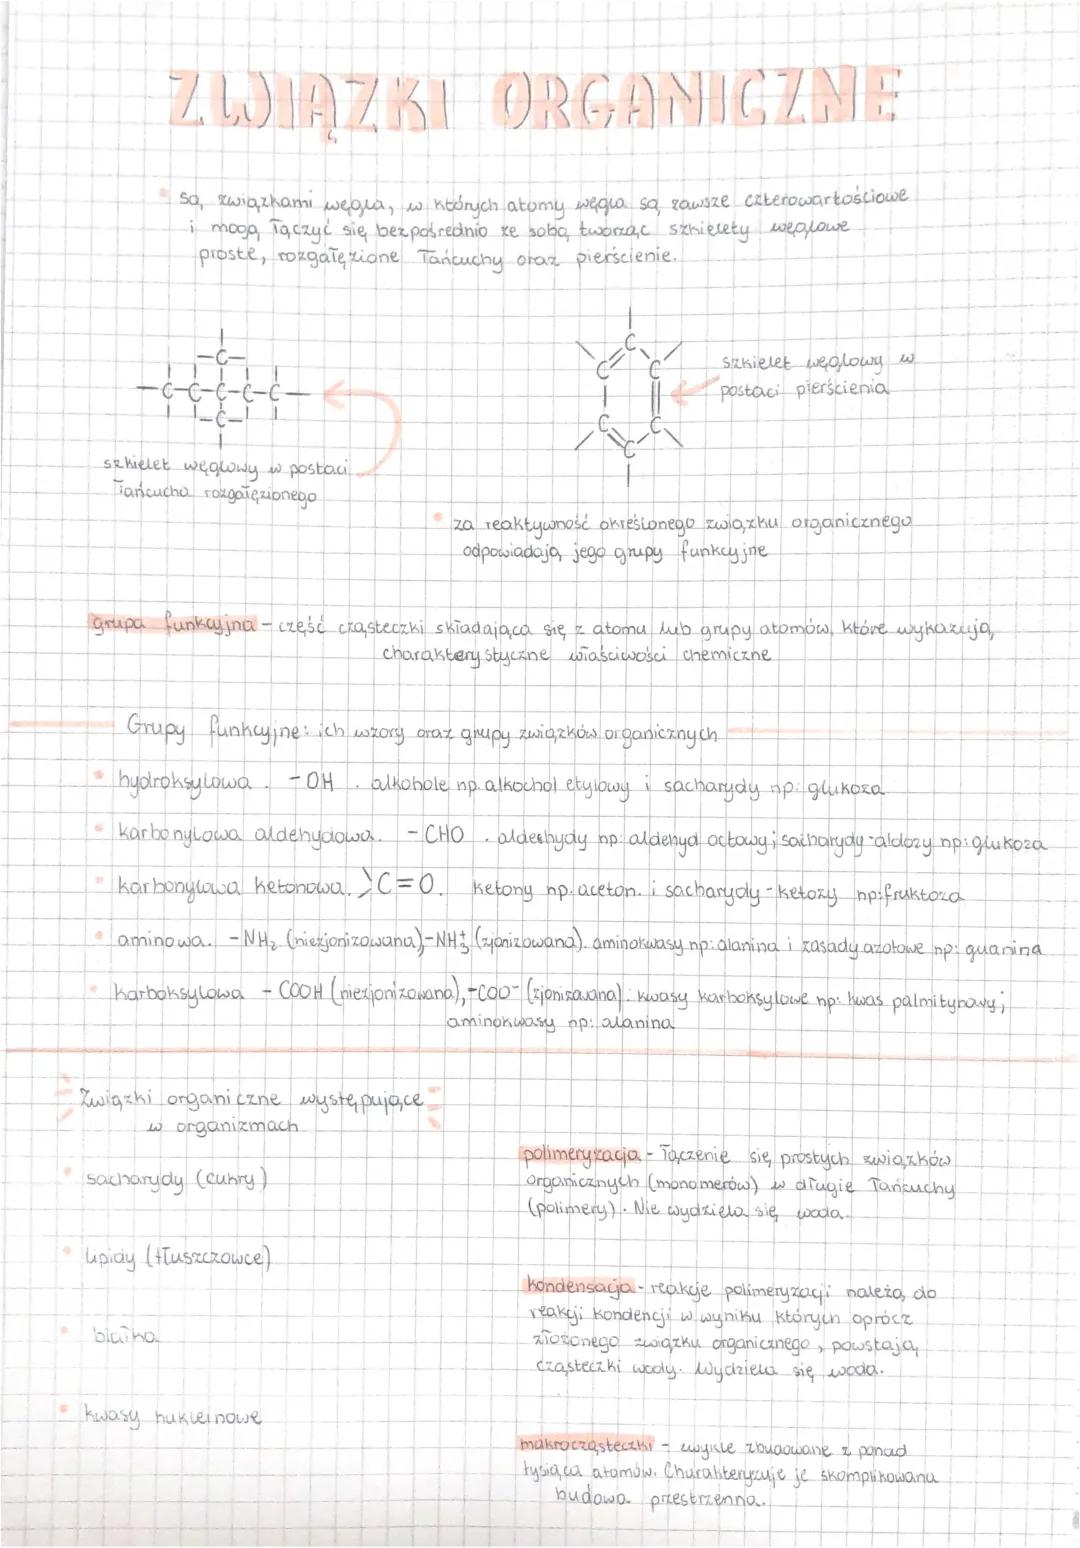 ZWIĄZKI ORGANICZNE
są związkami węgla, w których atomy węgla są zawsze czterowartościowe
i mogą łączyć się bezpośrednio ze sobą tworząc szkielety węglowe
proste, rozgałęzione łańcuchy oraz pierścienie.
-C-
-C-C-C-C-C-
-C-
C
C C
C C
C
szkielet węglowy w
postaci pierścienia
szkielet węglowy w postaci
łańcucha rozgałęzionego
za reaktywność określonego związku organicznego
odpowiadają jego grupy funkcyjne
grupa funkcyjna - część cząsteczki składająca się z atomu lub grupy atomów, które wykazują
charakterystyczne właściwości chemiczne
Grupy funkcyjne: ich wzory oraz grupy związków organicznych
hydroksylowa. -OH. alkohole np. alkochol etylowy i sacharydy np: glukoza
karbonylowa aldehydowa. -CHO. aldeehydy np: aldehyd octowy; sacharydy-aldozy np: glukoza
karbonylowa ketonowa. >C=O. ketony np. aceton. i sacharydy-ketozy np: fruktoza
aminowa. -NH₂ (niezjonizowana),-NH₃⁺ (zjonizowana). aminokwasy np: alanina i zasady azotowe np: guanina
karboksylowa -COOH (niezjonizowana),-COO⁻ (zjonizowana). kwasy karboksylowe np: kwas palmitynowy;
aminokwasy np: alanina
Związki organiczne występujące
w organizmach
sacharydy (cukry)
lipidy (tłuszczowce)
białka
kwasy nukleinowe
polimeryzacja - łączenie się prostych związków
organicznych (monomerów) w długie łańcuchy
(polimery). Nie wydziela się woda.
kondensacja - reakcje polimeryzacji należą do
reakcji kondencji w wyniku których oprócz
złożonego związku organicznego, powstają
cząsteczki wody. Wydziela się woda.
makrocząsteczki - zwykle zbudowane z ponad
tysiąca atomów. Charakteryzuje je skomplikowana
budowa przestrzenna.